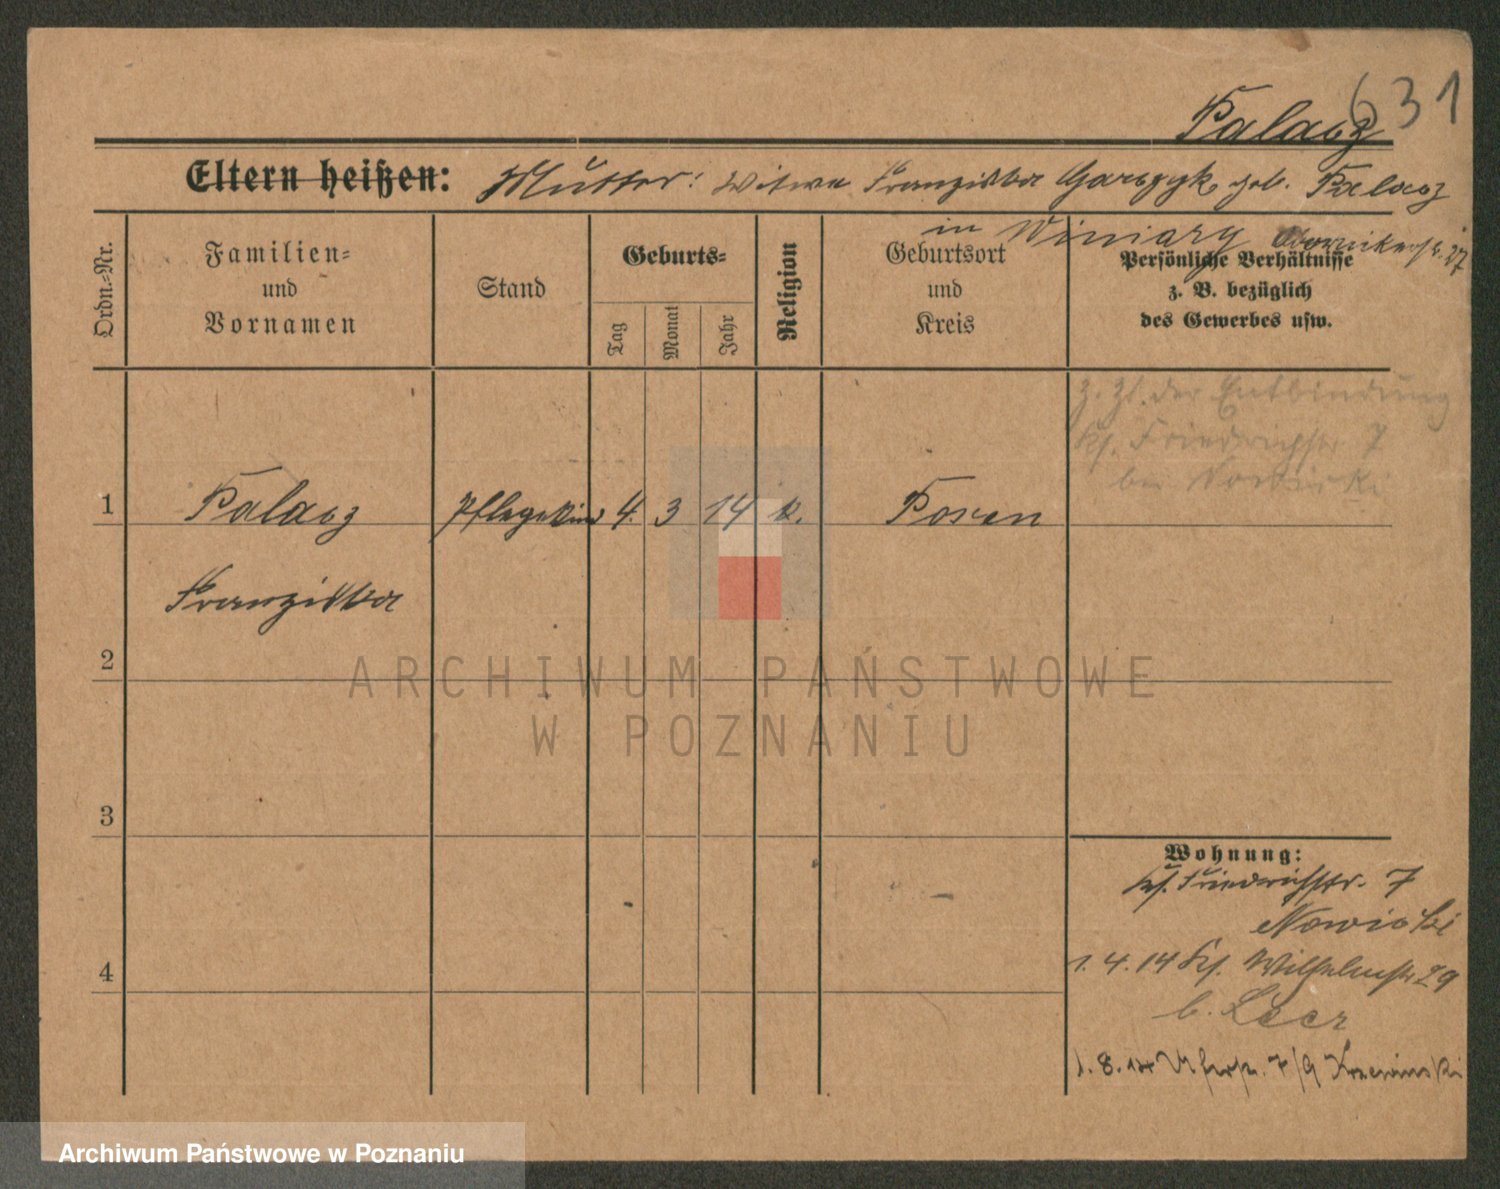 631
Palacz
Eltern heißen: Mutter: Witwe Franziska geb. Palacz
in Winiary
Ordn.-Nr.
Familien-
und
Vornamen
Stand
Geburts-
Tag
Monat
Jahr
Religion
Geburtsort
und
Kreis
Persönliche Verhältnisse
z. B. bezüglich
des Gewerbes usw.
z. Zt. der Entbindung
Friedrichstr. 7
bei
1 Palacz Pflegekind 4. 3 14 k. Posen
Franziska
2
3
4
Wohnung:
Friedrichstr. 7
Nowicki
1.4.14 Wilhelmstr. 29
b. Leer
1. 8. 14 7/9
ARCHIWUM PAŃSTWOWE
W POZNANIU
Archiwum Państwowe w Poznaniu